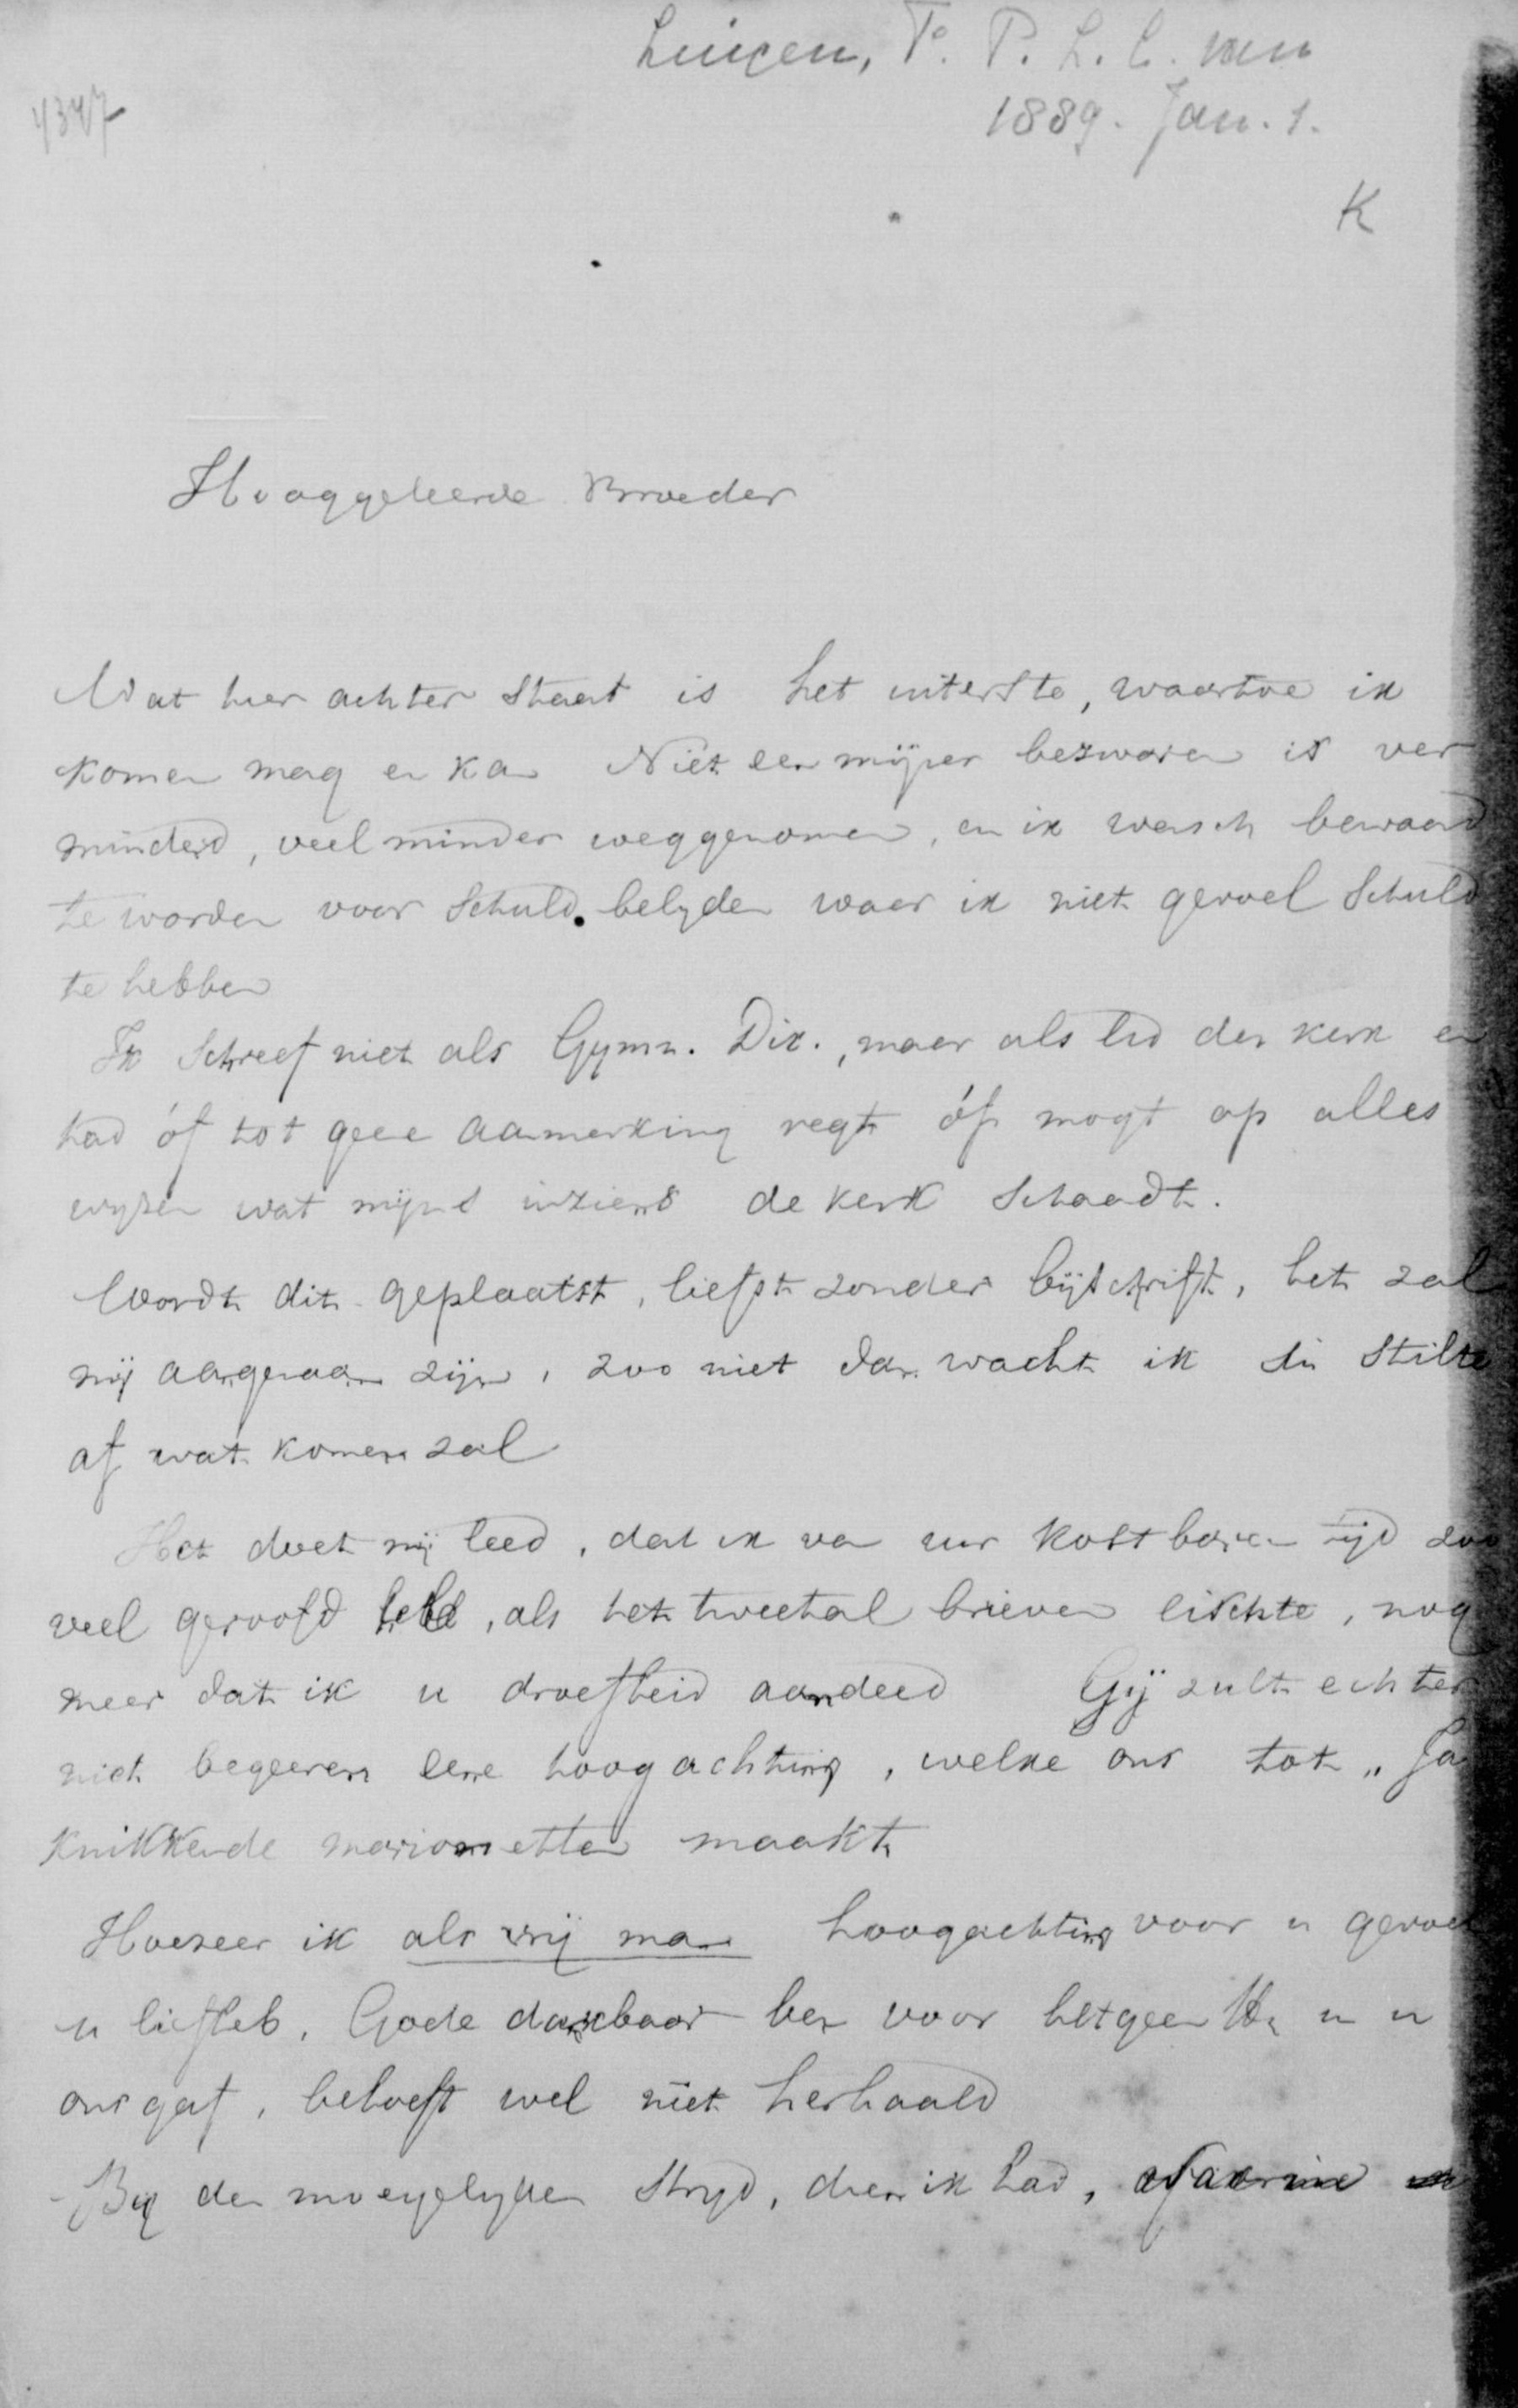 Lingen, F. P. L. C. van
1889. Jan. 1.
4347
K
Hooggeleerde Broeder
Wat hier achter staat is het uiterste, waartoe ik
komen mag en kan Niet een mijner bezwaren is ver
minderd, veel minder weggenomen, en ik wensch bewaard
te worden voor Schuld belyden waar ik niet gevoel Schuld
te hebben
Ik Schreef niet als Gymn. Dir., maar als lid der kerk en
had óf tot geene aanmerking regt óf mogt op alles
wyzen wat mijns inziens de kerk Schaadt.
Wordt dit geplaatst, liefst zonder bijschrift, het zal
mij aangenaam zijn, zoo niet dan wacht ik in stilte
af wat komen zal
Het doet mij leed, dat ik van uw kostbaren tijd zoo
veel geroofd heb, als het tweetal brieven eischte, nog
meer dat ik u droefheid aandeed Gij zult echter
niet begeeren eene hoogachting, welke ons tot „Ja
knikkende marionetten maakt
Hoezeer ik als vrij man hoogachting voor u gevoel
u liefheb, Gode dankbaar ben voor hetgeen Hij in u
ons gaf, behoeft wel niet herhaald
By den moeyelyken Stryd, dien ik had,